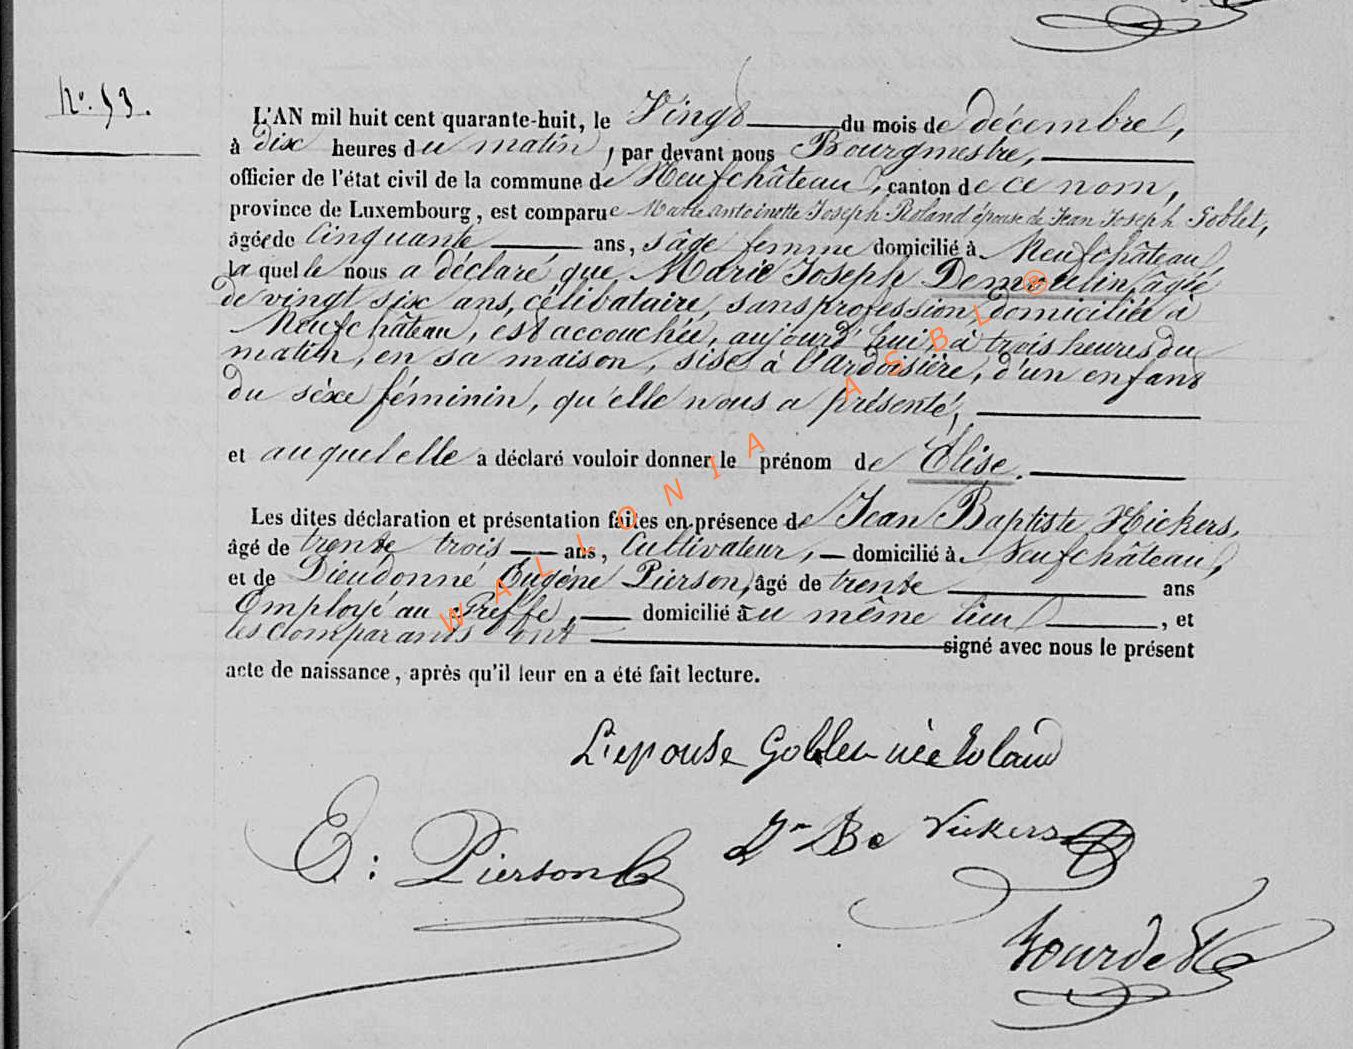 N° 53.
L'AN mil huit cent quarante-huit, le Vingt du mois de décembre,
à dix heures du matin, par devant nous Bourgmestre,
officier de l'état civil de la commune de Neufchâteau, canton de ce nom,
province de Luxembourg, est comparue Marie Antoinette Joseph Roland épouse de Jean Joseph Goblet,
âgée de Cinquante ans, sâge femme domicilié à Neufchâteau
laquelle nous a déclaré que Marie Joseph Demoulin, âgée
de vingt six ans, célibataire, sans profession, domiciliée à
Neufchâteau, est accouchée, aujourd'hui, à trois heures du
matin, en sa maison, sise à l'ardoisière, d'un enfant
du sèxe féminin, qu'elle nous a présenté,
et auquel elle a déclaré vouloir donner le prénom de Elise.
Les dites déclaration et présentation faites en présence de Jean Baptiste Hickers,
âgé de trente trois ans, Cultivateur, domicilié à Neufchâteau,
et de Dieudonné Eugène Pierson, âgé de trente ans
Employé au Greffe, domicilié au même lieu, et
les comparants ont signé avec nous le présent
acte de naissance, après qu'il leur en a été fait lecture.
WALLONIA ASBL ®
L'epouse Goblet née Roland
E: Pierson
Jn Bte Vickers